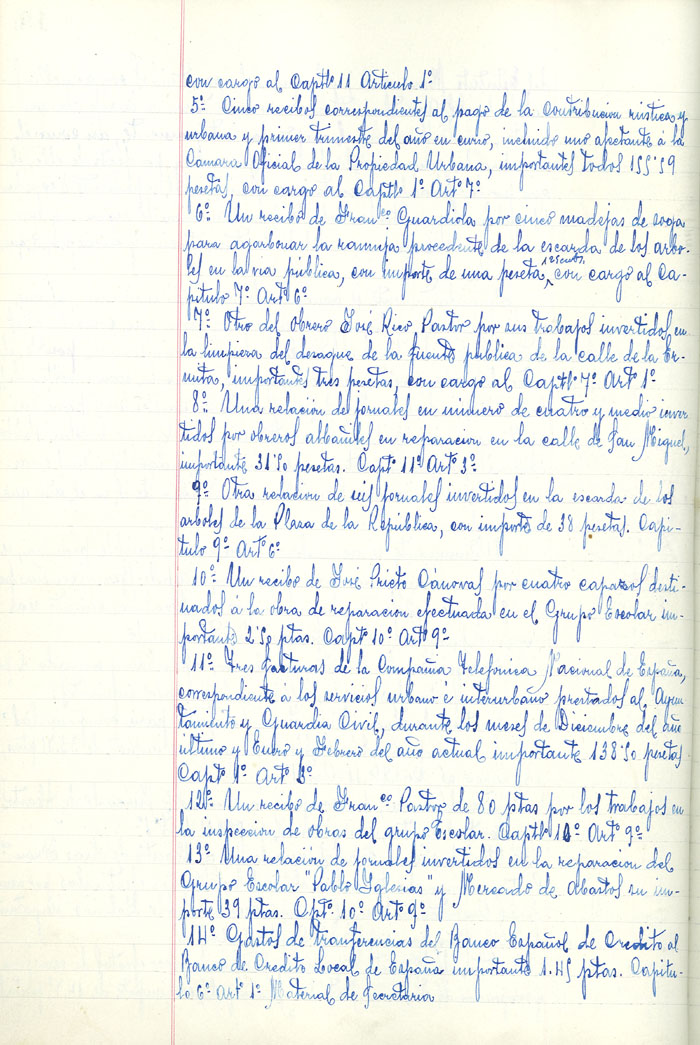 con cargo al Captº 11 Articulo 1º
5º Cinco recibos correspondientes al pago de la contribucion rústica y
urbana y primer trimestre del año en curso, incluido uno afectante á la
Cámara Oficial de la Propiedad Urbana, importantes todos 155'59
pesetas, con cargo al Captº 1º Artº 7º
6º Un recibo de Franco Guardiola por cinco madejas de soga
para agarbonar la ramuja procedente de la escarda de los arbo-
les en la via pública, con importe de una peseta, con cargo al Ca-
pitulo 7º Artº 6º
7º Otro del obrero José Rico Pastor por sus trabajos invertidos en
la limpieza del desague de la fuente publica de la calle de la Er-
mita, importantes tres pesetas, con cargo al Captº 7º Artº 1º
8º Una relación de jornales en número de cuatro y medio inver
tidos por obreros albañiles en reparacion en la calle de San Miguel,
importante 31'50 pesetas. Captº 11º Artº 3º
9º Otra relacion de seis jornales invertidos en la escarda de los
arboles de la Plaza de la República, con importe de 38 pesetas. Capi-
tulo 9º Artº 6º
10º Un recibo de José Prieto Cánovas por cuatro capazos desti-
nados á la obra de reparacion efectuada en el Grupo Escolar im-
portante 2'50 ptas. Captº 10º Artº 9º
11º Tres facturas de la Compañia Telefonica Nacional de España,
correspondiente á los servicios urbano e interurbano prestados al Ayun
tamiento y Guardia Civil, durante los meses de Diciembre del año
último y Enero y Febrero del año actual importante 138'50 pesetas
Captº 1º Artº 3º
12º Un recibo de Franco Pastor de 80 ptas por los trabajos en
la inspeccion de obras del grupo Escolar. Captº 10º Artº 9º
13º Una relación de jornales invertidos en la reparacion del
Grupo Escolar "Pablo Iglesias" y Mercado de Abastos su im-
porte 39 ptas. Cptº 10º Artº 9º
14º Gastos de tranferencias del Banco Español de Credito al
Banco de Credito Local de España importante 1.45 ptas. Capitu-
lo 6º Artº 1º Material de Secretaria